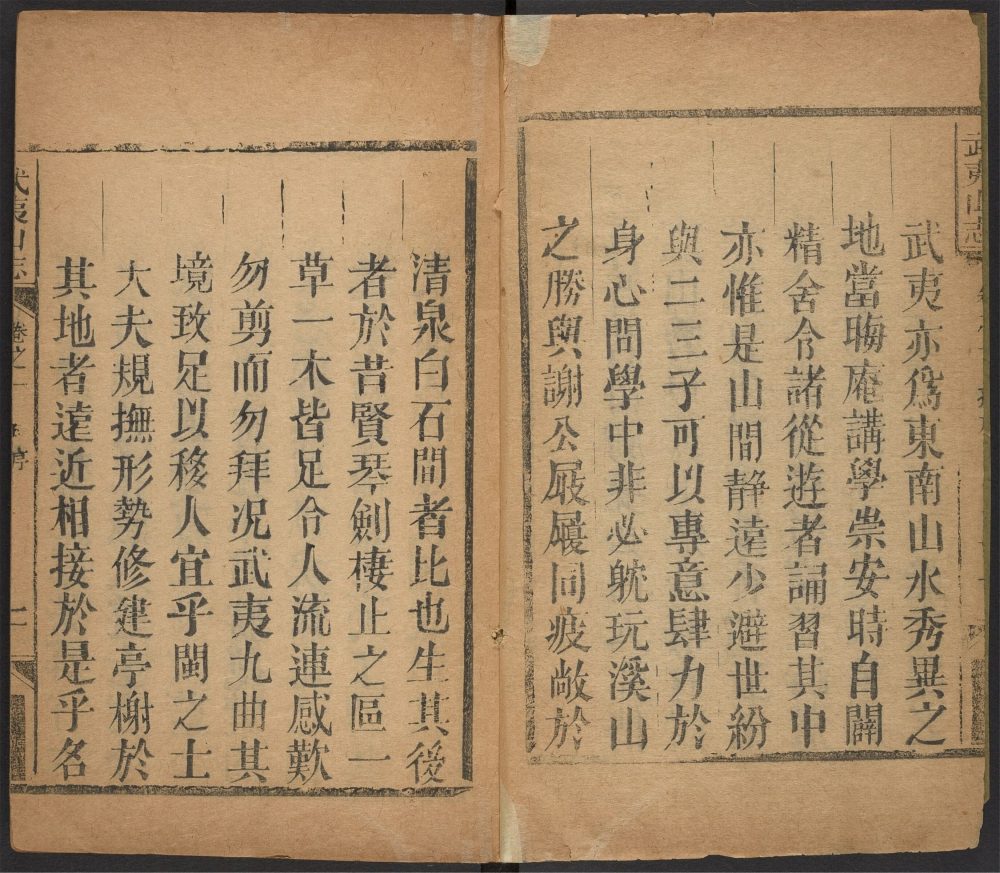 武夷山志
武夷亦爲東南山水秀異之
地當晦庵講學崇安時自闢
精舍令諸從遊者誦習其中
亦惟是山間靜遠少避世紛
與二三子可以專意肆力於
身心問學中非必躭玩溪山
之勝與謝公屐屨同疲敝於
清泉白石間者比也生其後
者於昔賢琴劍棲止之區一
草一木皆足令人流連感歎
勿剪而勿拜况武夷九曲其
境致足以移人宜乎閩之士
大夫規撫形勢修建亭榭於
其地者遠近相接於是乎名
武夷山志
卷之一
序
二